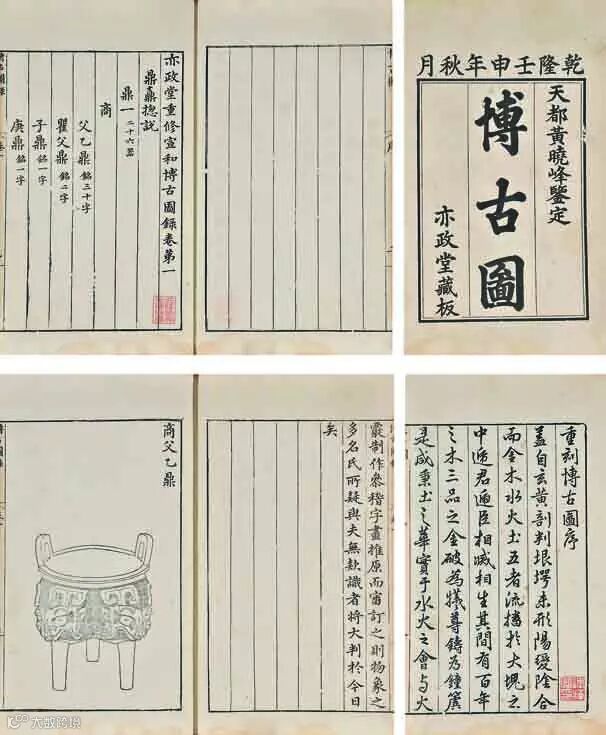 乾隆壬申年秋月
天都黃曉峰鑒定
博古圖
亦政堂藏板
亦政堂重修宣和博古圖錄卷第一
鼎鼒揔說
鼎一 二十六器
商
父乙鼎 銘三十字
瞿父鼎 銘二字
子鼎 銘一字
庚鼎 銘一字
重刻博古圖序
蓋自玄黃剖判垠堮未形陽變陰合
而金木水火土五者流播於大塊之
中遞君遞臣相滅相生其間百年
之木三品之金破為犧尊鑄為鐘簴
是咸秉土之華實于水火之會與火
嚴制作參稽字畫推原而審訂之則物象之
多名氏所疑與夫無款識者將大判於今日
矣
商父乙鼎
大数跨境